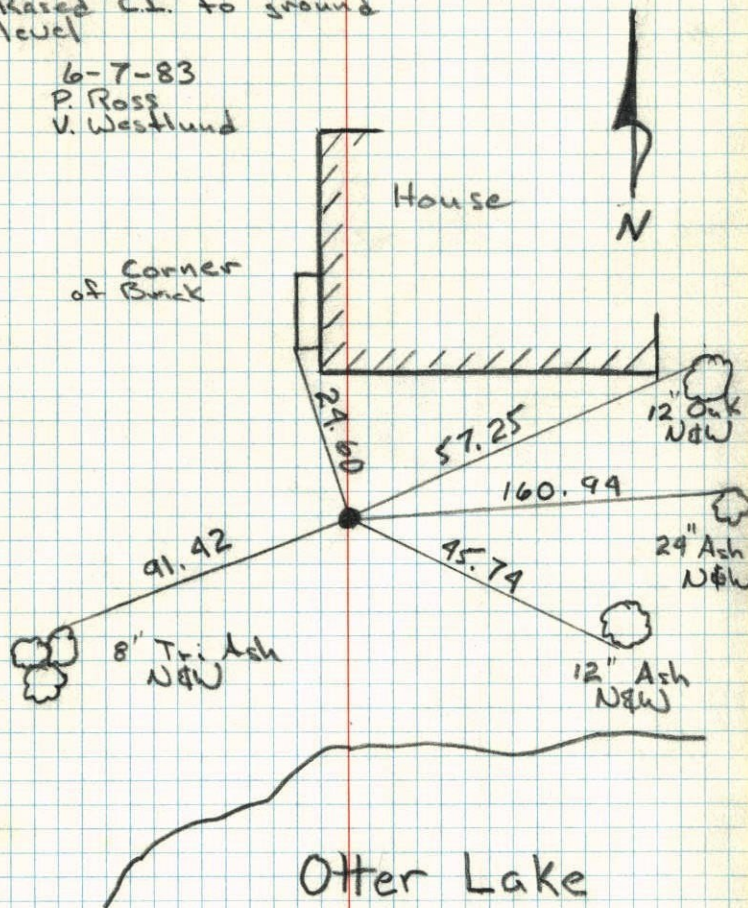 C.I. to ground
level
6-7-83
P. Ross
V. Westlund
House
N
Corner
of Brick
24.60
57.25
12" Oak
N&W
160.94
24" Ash
N&W
91.42
45.74
8" Tri Ash
N&W
12" Ash
N&W
Otter Lake